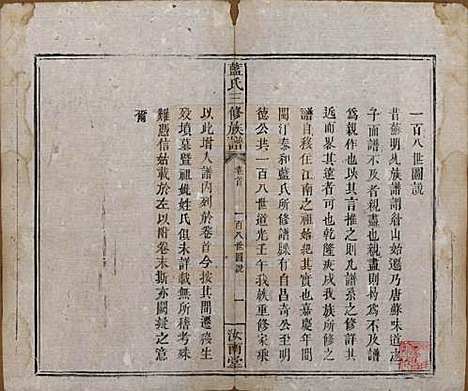 一百八世圖說
昔蘇明允族譜譜眉山始遷乃唐蘇味道之
子而譜不及者親盡也親盡則曷不譜譜
為親作也以其尚存其九譜系之修詳其
近而畧其遠者可也乾隆庚戌我族所修之
譜自移住江南之祖始紀其實也嘉慶年間
閩汀泰和藍氏所修譜牒有自昌奇公至明
德公共一百八世道光壬午我族重修家乘
藍氏三修族譜
卷首
一百八世圖說
一
汝南堂
以此增入譜內列於卷首今按其間遷徙生
歿墳墓暨祖妣姓氏俱未詳載無所稽考殊
難憑信姑載於左以附卷末斯亦闕疑之意
爾